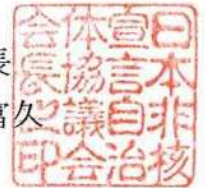 長
富久
日本非核
宣言自治
体協議会
会長之印